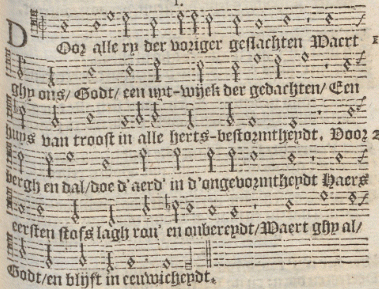 I.
DOor alle ry der voriger geslachten Waert
ghy ons/ Godt/ een uyt-wijck der gedachten/ Een
huys van troost in alle herts-bestormtheydt. Voor 2
bergh en dal/doe d'aerd' in d'ongevormtheydt Haers
eersten stofs lagh rou' en onbereydt/Waert ghy al/
Godt/en blijft in eeuwicheydt.